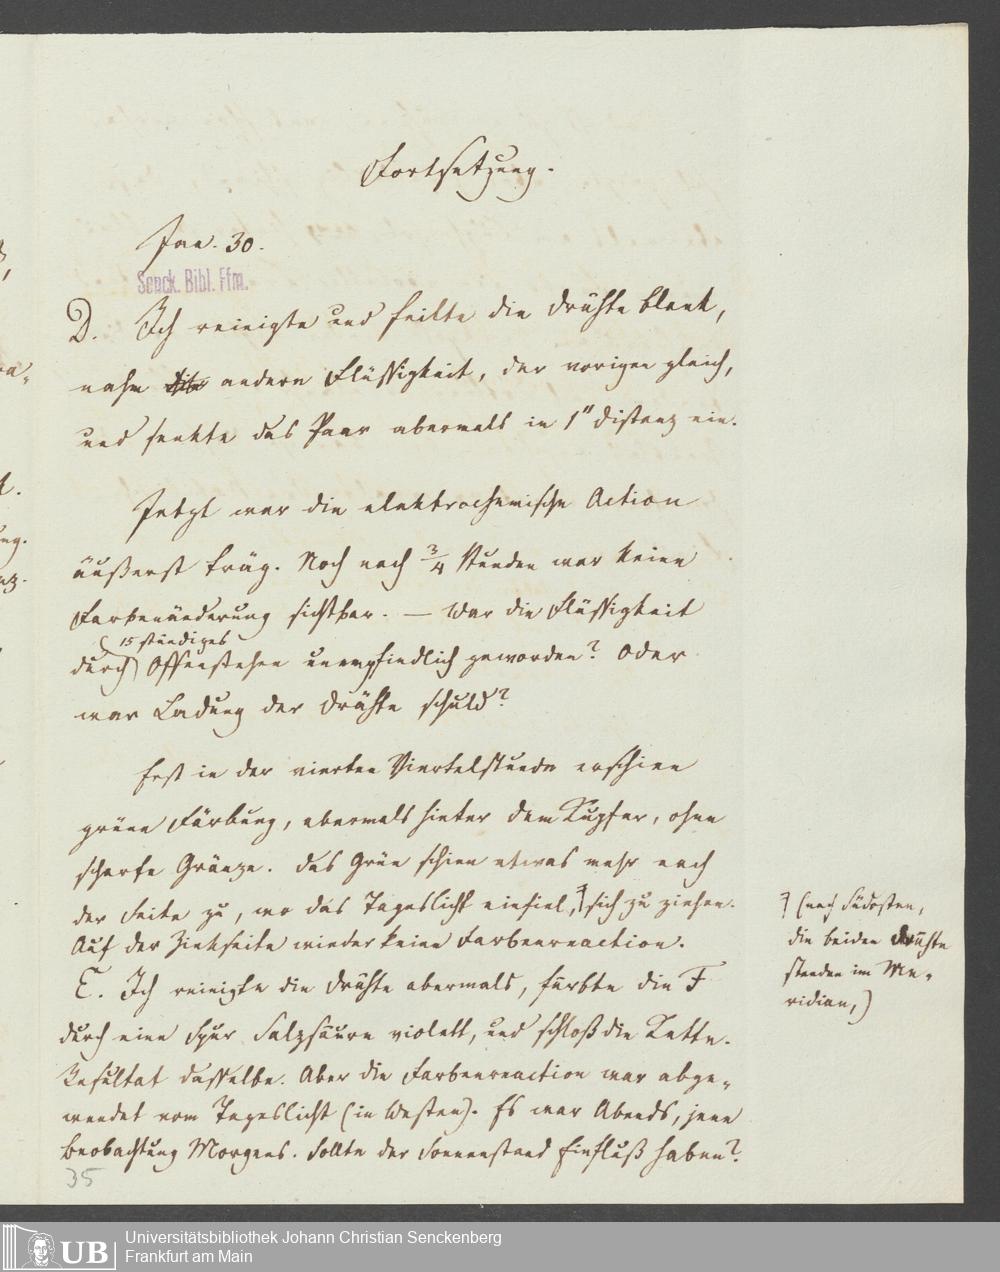 Fortsetzung.
Jan. 30.
Senck. Bibl. Ffm.
D. Ich reinigte und feilte die Drähte blank,
nahm andern Flüssigkeit, der vorigen gleich,
und senkte das Paar abermals in 1" Distanz ein.
Jetzt war die elektrochemische Action
äußerst träg. Noch nach 3/4 Stunden war keine
Farbenänderung sichtbar. — War die Flüssigkeit
15 stündiges
durch Offenstehen unempfindlich geworden? Oder
war Ladung der Drähte schuld?
Erst in der vierten Viertelstunde erschien
grüne Färbung, abermals hinter dem Kupfer, ohne
scharfe Gränze. Das Grün schien etwas mehr nach
der Seite zu, wo das Tageslicht einfiel, sich zu ziehen.
Auf der Zinkseite wieder keine Farbenreaction.
E. Ich reinigte die Drähte abermals, färbte die F
durch eine Spur Salzsäure violett, und schloß die Kette.
Resultat dasselbe. Aber die Farbenreaction war abge-
wendet vom Tageslicht (in Westen). Es war Abends, jene
Beobachtung Morgens. Sollte der Sonnenstand Einfluß haben?
(nach Südosten,
die beiden Drähte
standen im Me-
ridian,)
35
UB
Universitätsbibliothek Johann Christian Senckenberg
Frankfurt am Main